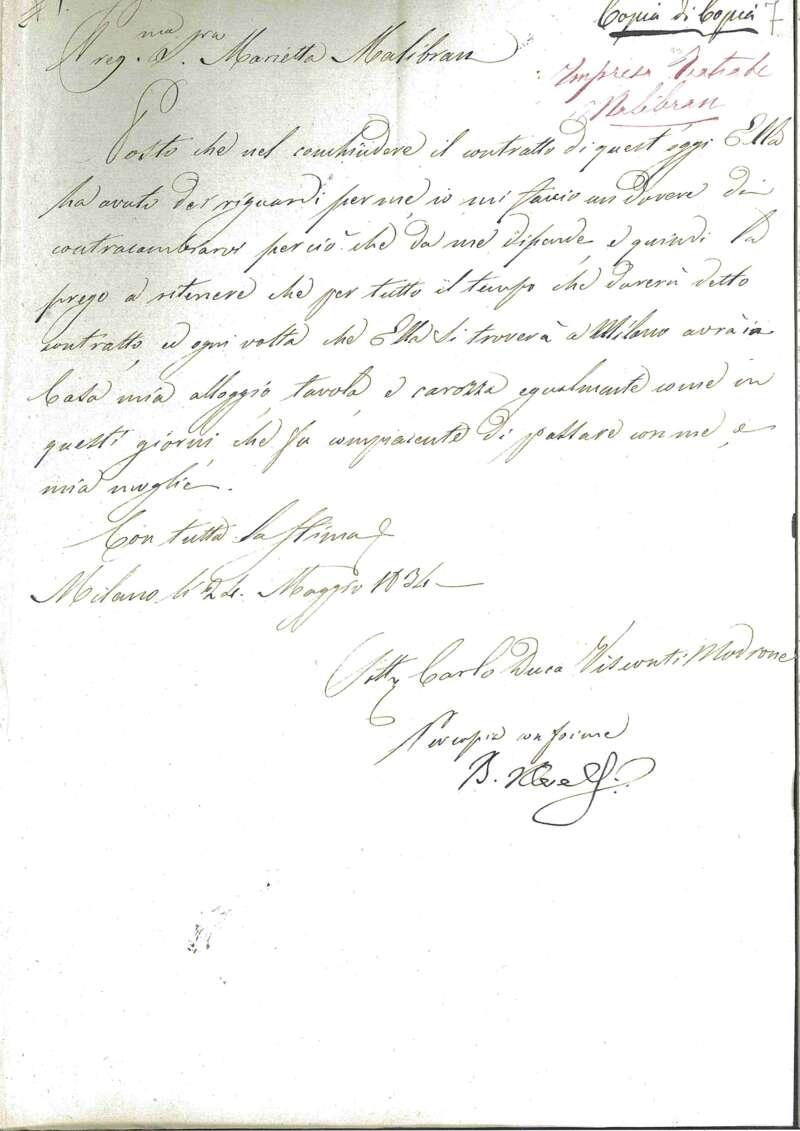 Copia di Copia 7
Preg.ma S.ra Marietta Malibran
Impresa Teatrale
Malibran
Posto che nel conchiudere il contratto di quest'oggi Ella
ha avuto dei riguardi per me, io mi faccio un dovere di
contracambiarvi per ciò che da me dipende, e quindi la
prego a ritenere che per tutto il tempo che durerà detto
contratto, ed ogni volta che Ella si troverà a Milano avrà in
Casa mia alloggio, tavola e carozza egualmente come in
questi giorni, che fu compiacente di passare con me, e
mia moglie.
Con tutta la stima
Milano li 24. Maggio 1834
Sott. Carlo Duca Visconti Modrone
Per copia conforme
B.